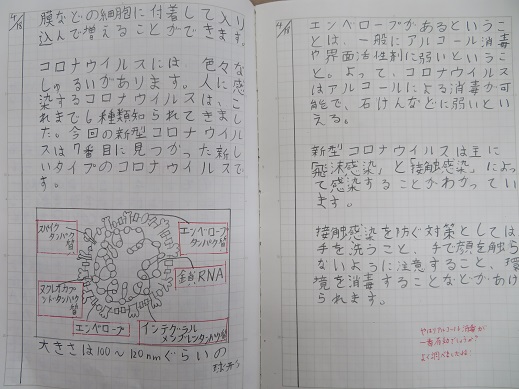 4/18
膜などの細胞に付着して入り
込んで増えることができます。
コロナウイルスには、色々な
しゅるいがあります。人に感
染するコロナウイルスは、こ
れまで6種類知られてきまし
た。今回の新型コロナウイル
スは7番目に見つかった新し
いタイプのコロナウイルスで
す。
スパイク
タンパク質
エンベロープ
タンパク質
RNA
ヌクレオカプ
シド・タンパク質
エンベロープ
インテグラル
メンブレンタンパク質
大きさは100〜120nmぐらいの
球形
4/18
エンベロープがあるというこ
とは、一般にアルコール消毒
や界面活性剤に弱いというこ
と。よって、コロナウイルス
はアルコールによる消毒か可
能で、石けんなどに弱いとい
える。
新型コロナウイルスは主に
「飛沫感染」と「接触感染」によっ
て感染することかわかってい
ます。
接触感染を防ぐ対策としては
手を洗うこと、手で顔を触ら
ないように注意すること、環
境を消毒することなどかあけ
られます。
やはりアルコール消毒が
一番有効でしょうか?
よく調べましたね!